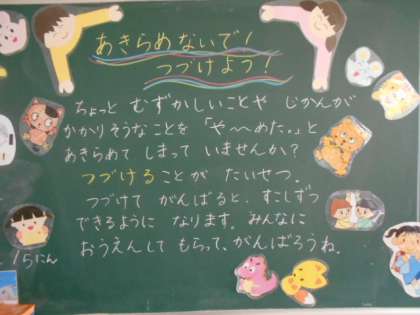 あきらめないで！
つづけよう！
ちょっと むずかしいことや じかんが
かかりそうなことを 「や〜めた。」と
あきらめて しまって いませんか？
つづけることが たいせつ。
つづけて がんばると、すこしずつ
できるように なります。みんなに
おうえんして もらって、がんばろうね。
15にん